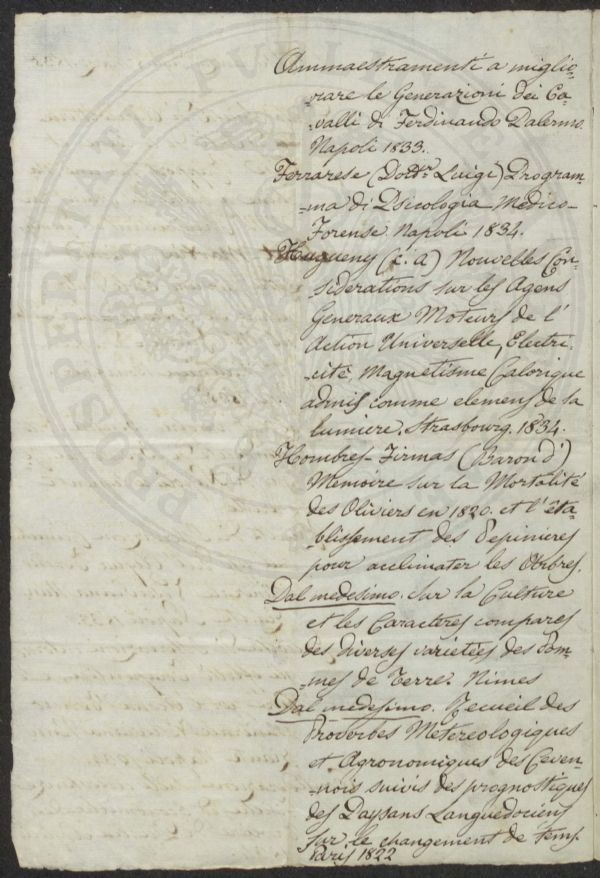 Ammaestramenti a miglio-
-rare le Generazioni dei Ca-
-valli di Ferdinando Palermo.
Napoli 1833.
Ferrarese (Dottr. Luigi) Program-
-ma di Psicologia Medico-
Forense Napoli 1834.
Hugueny (c. a) Nouvelles Con-
siderations sur les Agens
Generaux Moteurs de l'
Action Universelle, Electri-
-cité, Magnetisme Calorique
admis comme elemens de la
lumiere. Strasbourg. 1834.
Hombres-Firmas (Baron d')
Memoire sur la Mortalité
des Oliviers en 1820. et l'éta-
-blissement des Pepinieres
pour acclimater les Arbres.
Dal medesimo. Sur la Culture
et les Caracteres compares
des diverses varietées des Pom-
-mes de Terre. Nimes
Dal medesimo. Recueil des
Proverbes Metereologiques
et Agronomiques des Ceven-
-nois suivis des prognostiques
des Paysans Languedociens
sur le changement de tems.
Paris 1822